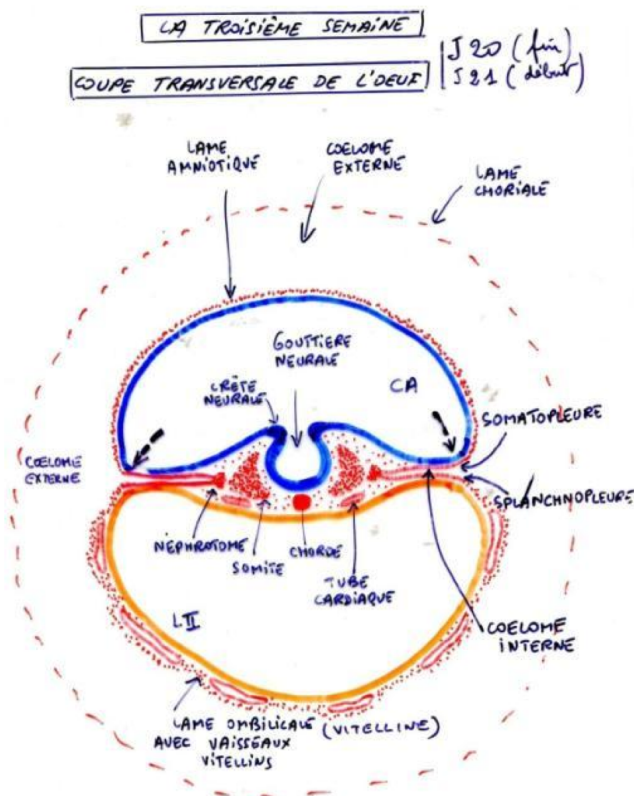 LA TROISIÈME SEMAINE
COUPE TRANSVERSALE DE L'OEUF
J20 (fin)
J21 (début)
LAME
AMNIOTIQUE
COELOME
EXTERNE
LAME
CHORIALE
GOUTTIÈRE
NEURALE
CRÊTE
NEURALE
CA
SOMATOPLEURE
COELOME
EXTERNE
SPLANCHNOPLEURE
NÉPHROTOME
SOMITE
CHORDE
TUBE
CARDIAQUE
LII
COELOME
INTERNE
LAME OMBILICALE (VITELLINE)
AVEC VAISSEAUX
VITELLINS